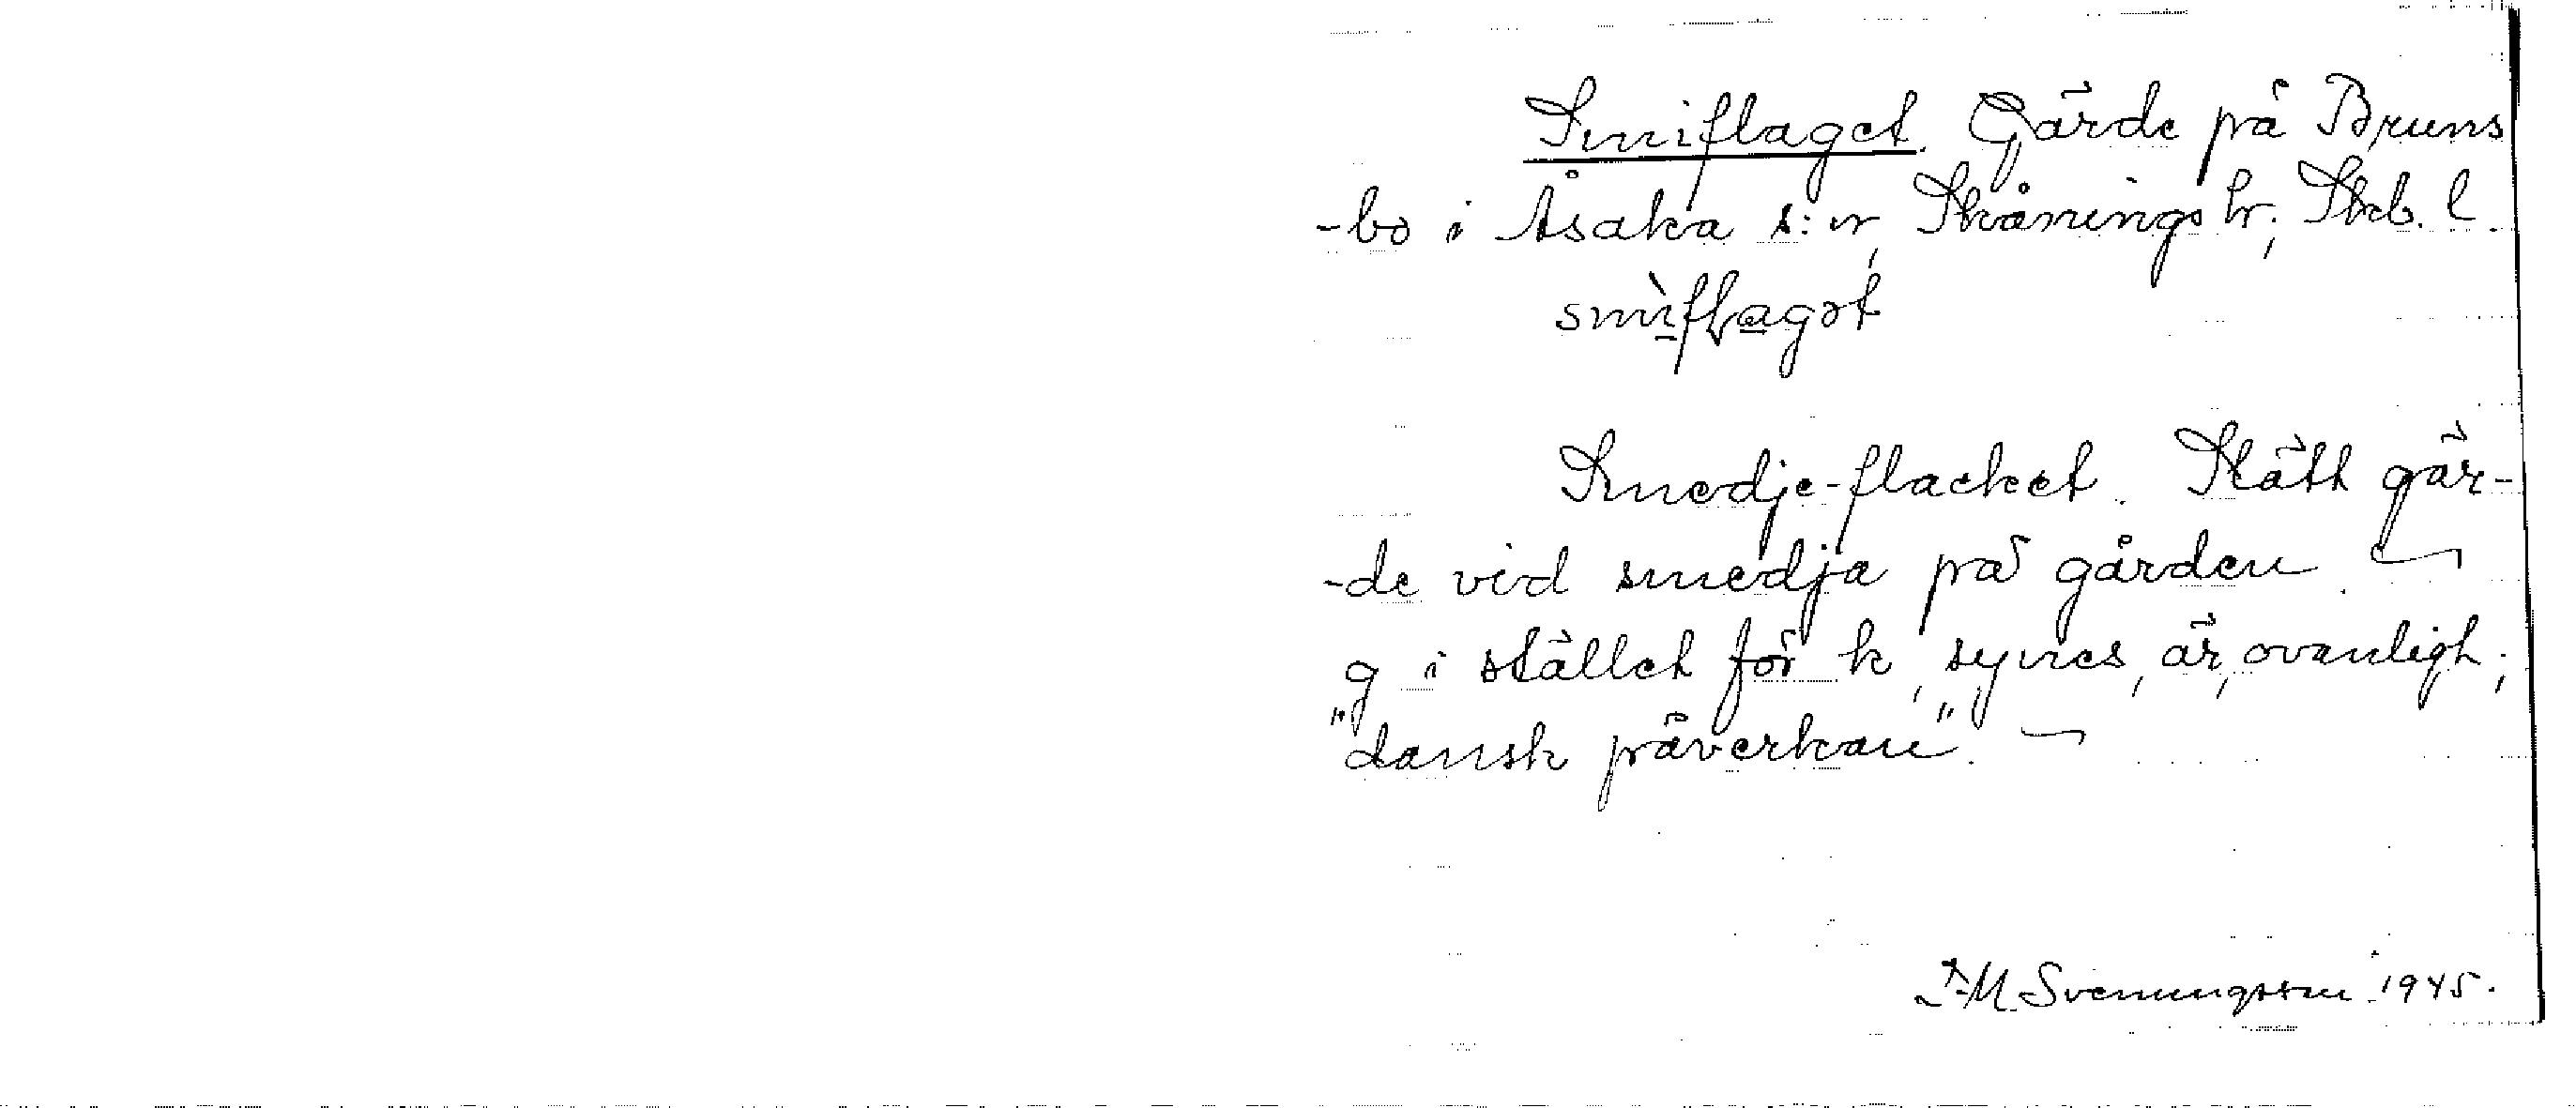 Smiflaget. Gärde på Bruns
-bo i Åsaka s:n, Skånings hr; Skb. l.
smìflagət
Smedje-flacket. Slätt gär-
-de vid smedja på gården.
g i stället för k, synes, är, ovanligt;
"dansk påverkan".
F. M. Svenungsson 1945.